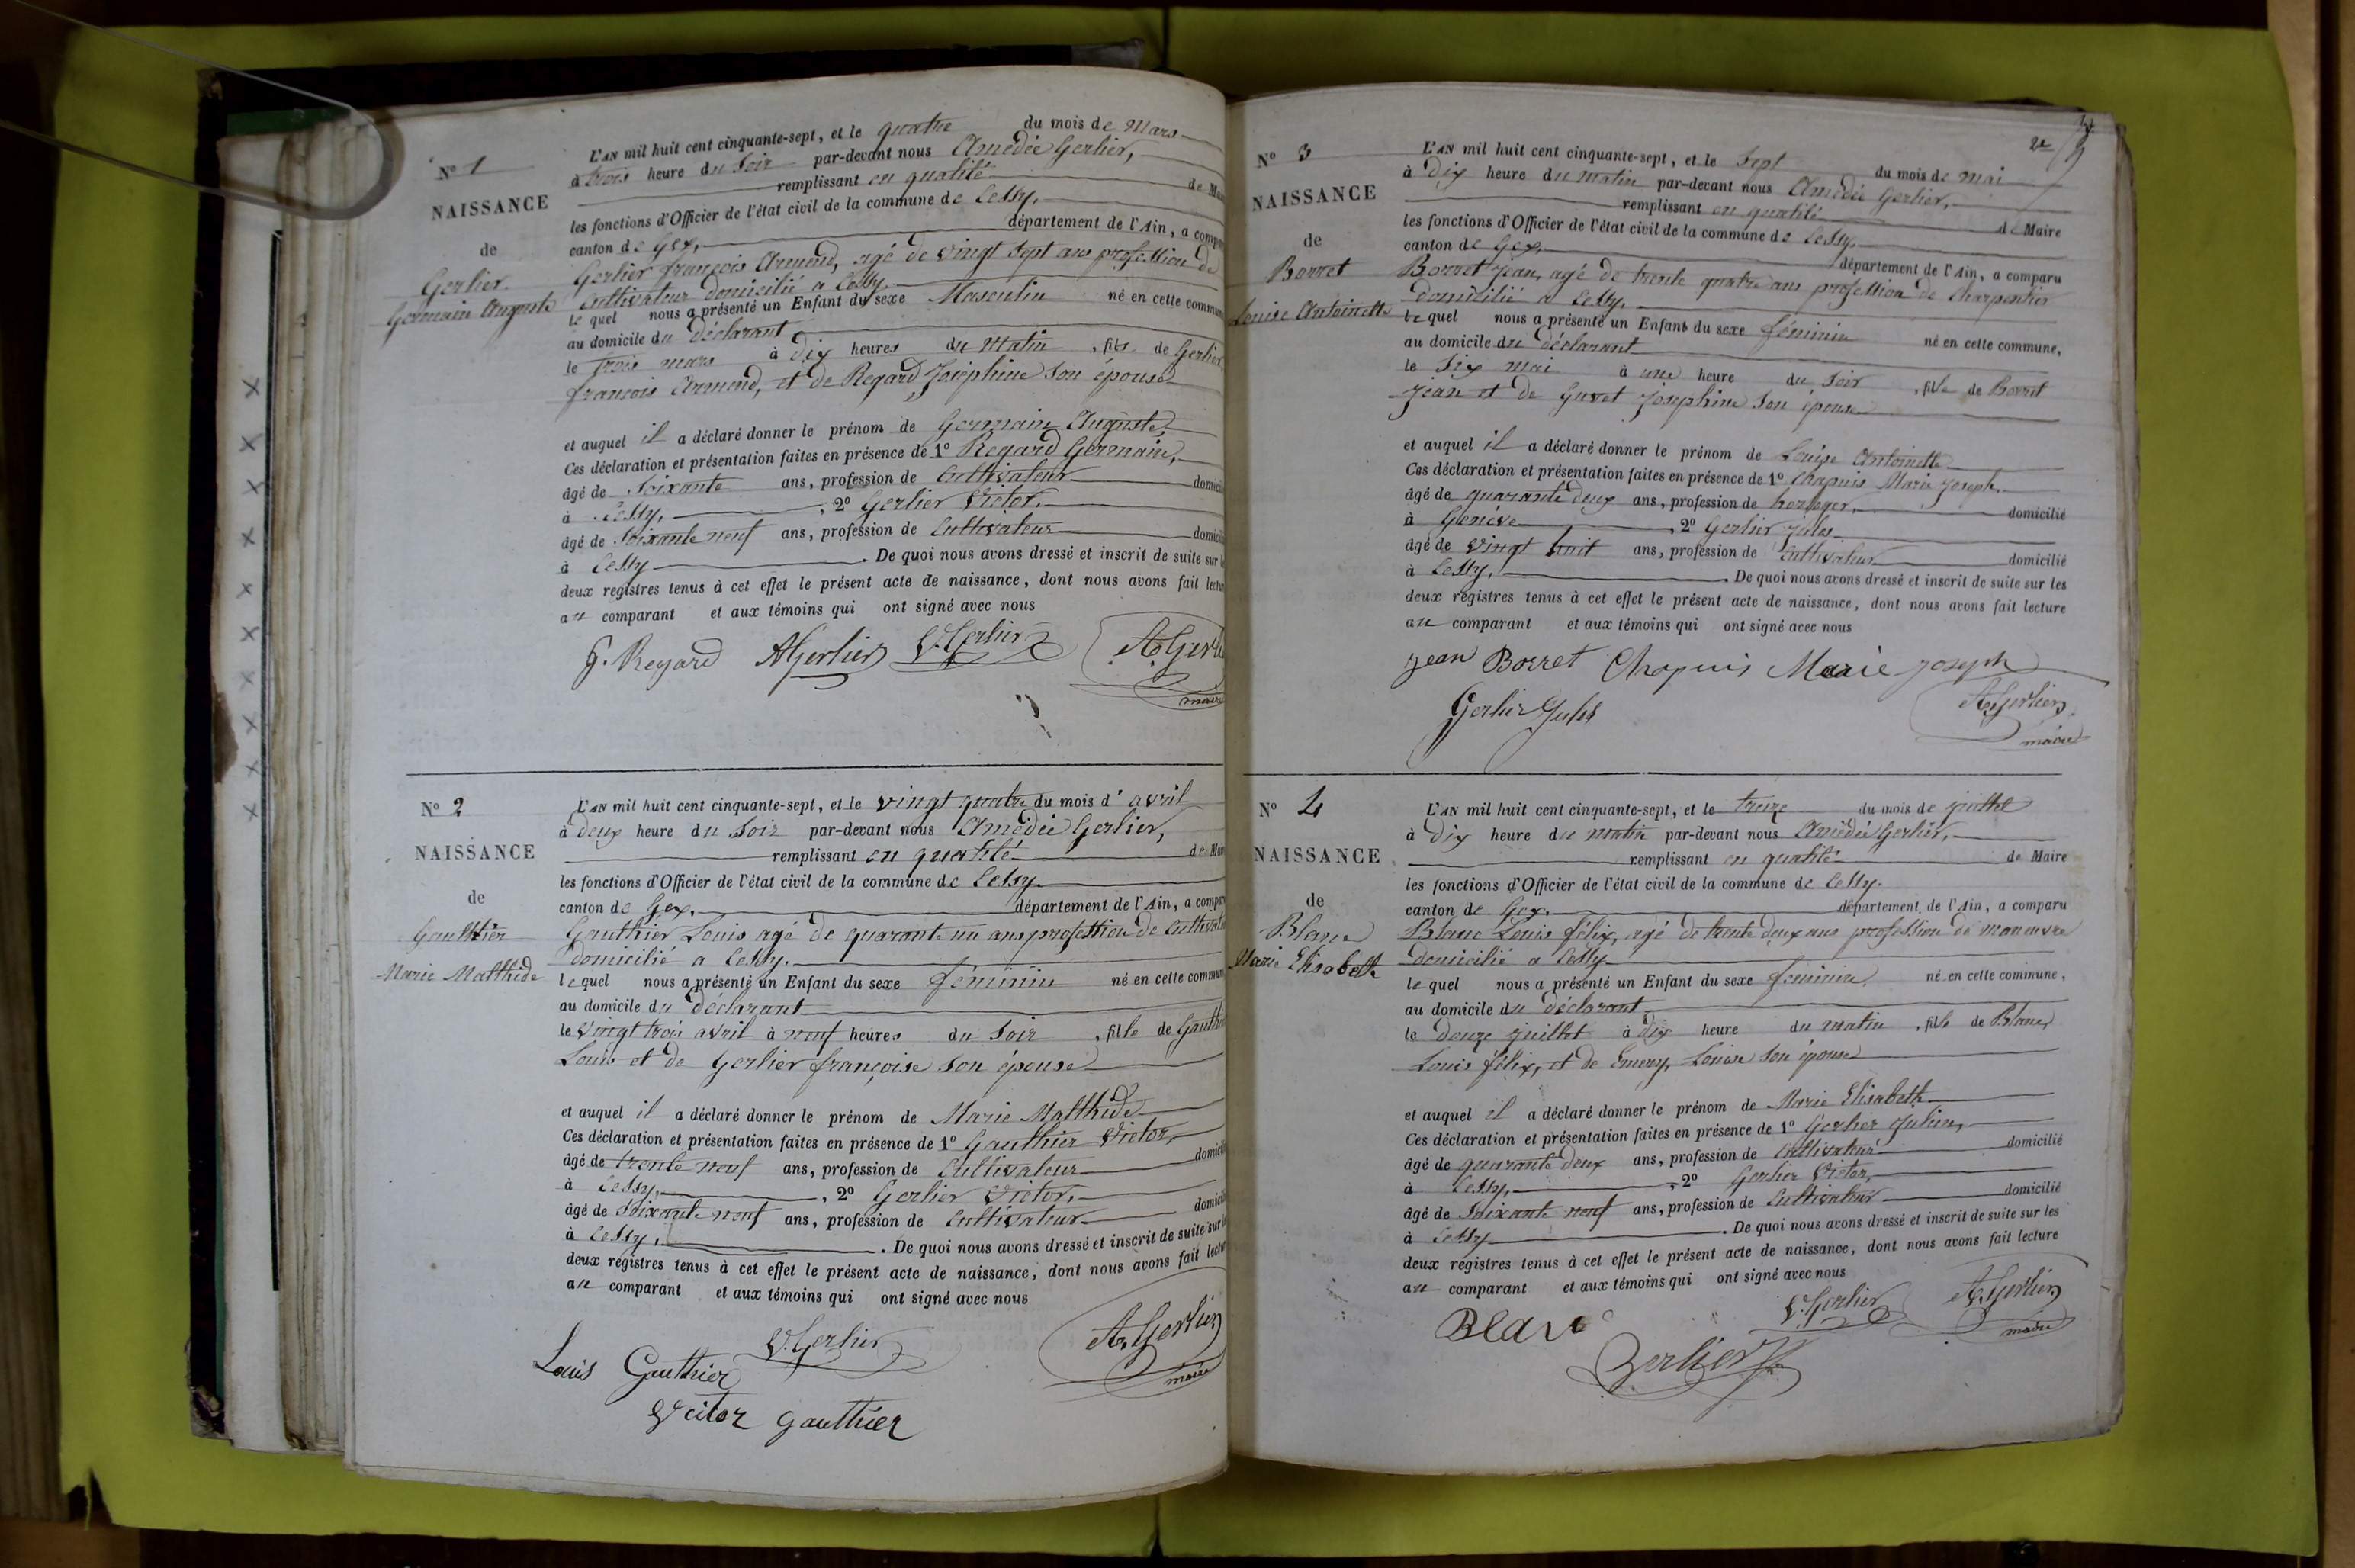 Nº 1
NAISSANCE
de
Gerlier
Germain Auguste
L'AN mil huit cent cinquante-sept, et le quatre du mois de Mars
à trois heure du Soir par-devant nous Amédée Gerlier,
remplissant en qualité de Ma
les fonctions d'Officier de l'état civil de la commune de Cessy,
canton de Gex, département de l'Ain, a compa
Gerlier françois Armand, agé de vingt sept ans profession de
Cultivateur domicilié a Cessy.
le quel nous a présenté un Enfant du sexe Masculin né en cette commun
au domicile du déclarant
le trois mars à dix heures du Matin, fils de Gerlier
francois Armand, et de Regard Joséphine Son épouse
et auquel il a déclaré donner le prénom de Germain Auguste
Ces déclaration et présentation faites en présence de 1º Regard Germain,
âgé de Soixante ans, profession de Cultivateur domici
à Cessy, , 2º Gerlier Victor,
âgé de Soixante neuf ans, profession de Cultivateur domici
à Cessy . De quoi nous avons dressé et inscrit de suite sur l
deux registres tenus à cet effet le présent acte de naissance, dont nous avons fait lectu
au comparant et aux témoins qui ont signé avec nous
G. Regard AGerlier V. Gerlier A. Gerli
maire
Nº 2
NAISSANCE
de
Gauthier
Marie Malthide
L'AN mil huit cent cinquante-sept, et le vingt quatre du mois d' avril
à deux heure du Soir par-devant nous Amédée Gerlier,
remplissant en qualité de Mai
les fonctions d'Officier de l'état civil de la commune de Cessy.
canton de Gex. département de l'Ain, a compa
Gauthier Louis agé de quarante un ans profession de Cultivat
domicilié a Cessy.
le quel nous a présenté un Enfant du sexe féminin né en cette commun
au domicile du déclarant
le vingt trois avril à neuf heures du Soir, fille de Gauth
Louis et de Gerlier françoise Son épouse
et auquel il a déclaré donner le prénom de Marie Malthide
Ces déclaration et présentation faites en présence de 1º Gauthier Victor,
âgé de trente neuf ans, profession de Cultivateur domici
à Cessy, , 2º Gerlier Victor,
âgé de Soixante neuf ans, profession de Cultivateur domici
à Cessy, . De quoi nous avons dressé et inscrit de suite sur l
deux registres tenus à cet effet le présent acte de naissance, dont nous avons fait lectu
au comparant et aux témoins qui ont signé avec nous
Louis Gauthier V. Gerlier A. Gerlier
maire
Vcitor gauthier
Nº 3
NAISSANCE
de
Borret
Louise Antoinette
L'AN mil huit cent cinquante-sept, et le Sept du mois de mai
à dix heure du matin par-devant nous Amédée Gerlier,
remplissant en qualité de Maire
les fonctions d'Officier de l'état civil de la commune de Cessy.
canton de Gex, département de l'Ain, a comparu
Borret Jean, agé de trente quatre ans profession de Charpentier
domicilié a Cessy.
le quel nous a présenté un Enfant du sexe féminin né en cette commune,
au domicile du déclarant
le Six mai à une heure du Soir, fille de Borret
Jean et de Guvet Josephine Son épouse
et auquel il a déclaré donner le prénom de Louise Antoinette
Ces déclaration et présentation faites en présence de 1º Chapuis Marie Joseph.
âgé de quarante deux ans, profession de horloger, domicilié
à Genève , 2º Gerlier Jules
âgé de vingt huit ans, profession de Cultivateur domicilié
à Cessy, . De quoi nous avons dressé et inscrit de suite sur les
deux registres tenus à cet effet le présent acte de naissance, dont nous avons fait lecture
au comparant et aux témoins qui ont signé avec nous
jean Borret Chapuis Marie joseph
Gerlier Jules A. Gerlier
maire
Nº 4
NAISSANCE
de
Blanc
Marie Elisabeth
L'AN mil huit cent cinquante-sept, et le treize du mois de juillet
à dix heure du matin par-devant nous Amédée Gerlier,
remplissant en qualité de Maire
les fonctions d'Officier de l'état civil de la commune de Cessy.
canton de Gex. département de l'Ain, a comparu
Blanc Louis félix, agé de trente deux ans profession de manœuvre
domicilié a Cessy
le quel nous a présenté un Enfant du sexe féminin né en cette commune,
au domicile du déclarant
le douze juillet à dix heure du matin, fille de Blanc
Louis félix, et de Emery, Louise Son épouse
et auquel il a déclaré donner le prénom de Marie Elisabeth
Ces déclaration et présentation faites en présence de 1º Gerlier Julien,
âgé de quarante deux ans, profession de Cultivateur domicilié
à Cessy, , 2º Gerlier Victor,
âgé de Soixante neuf ans, profession de Cultivateur domicilié
à Cessy . De quoi nous avons dressé et inscrit de suite sur les
deux registres tenus à cet effet le présent acte de naissance, dont nous avons fait lecture
au comparant et aux témoins qui ont signé avec nous
Blanc V. Gerlier A. Gerlier
maire
Gerlier